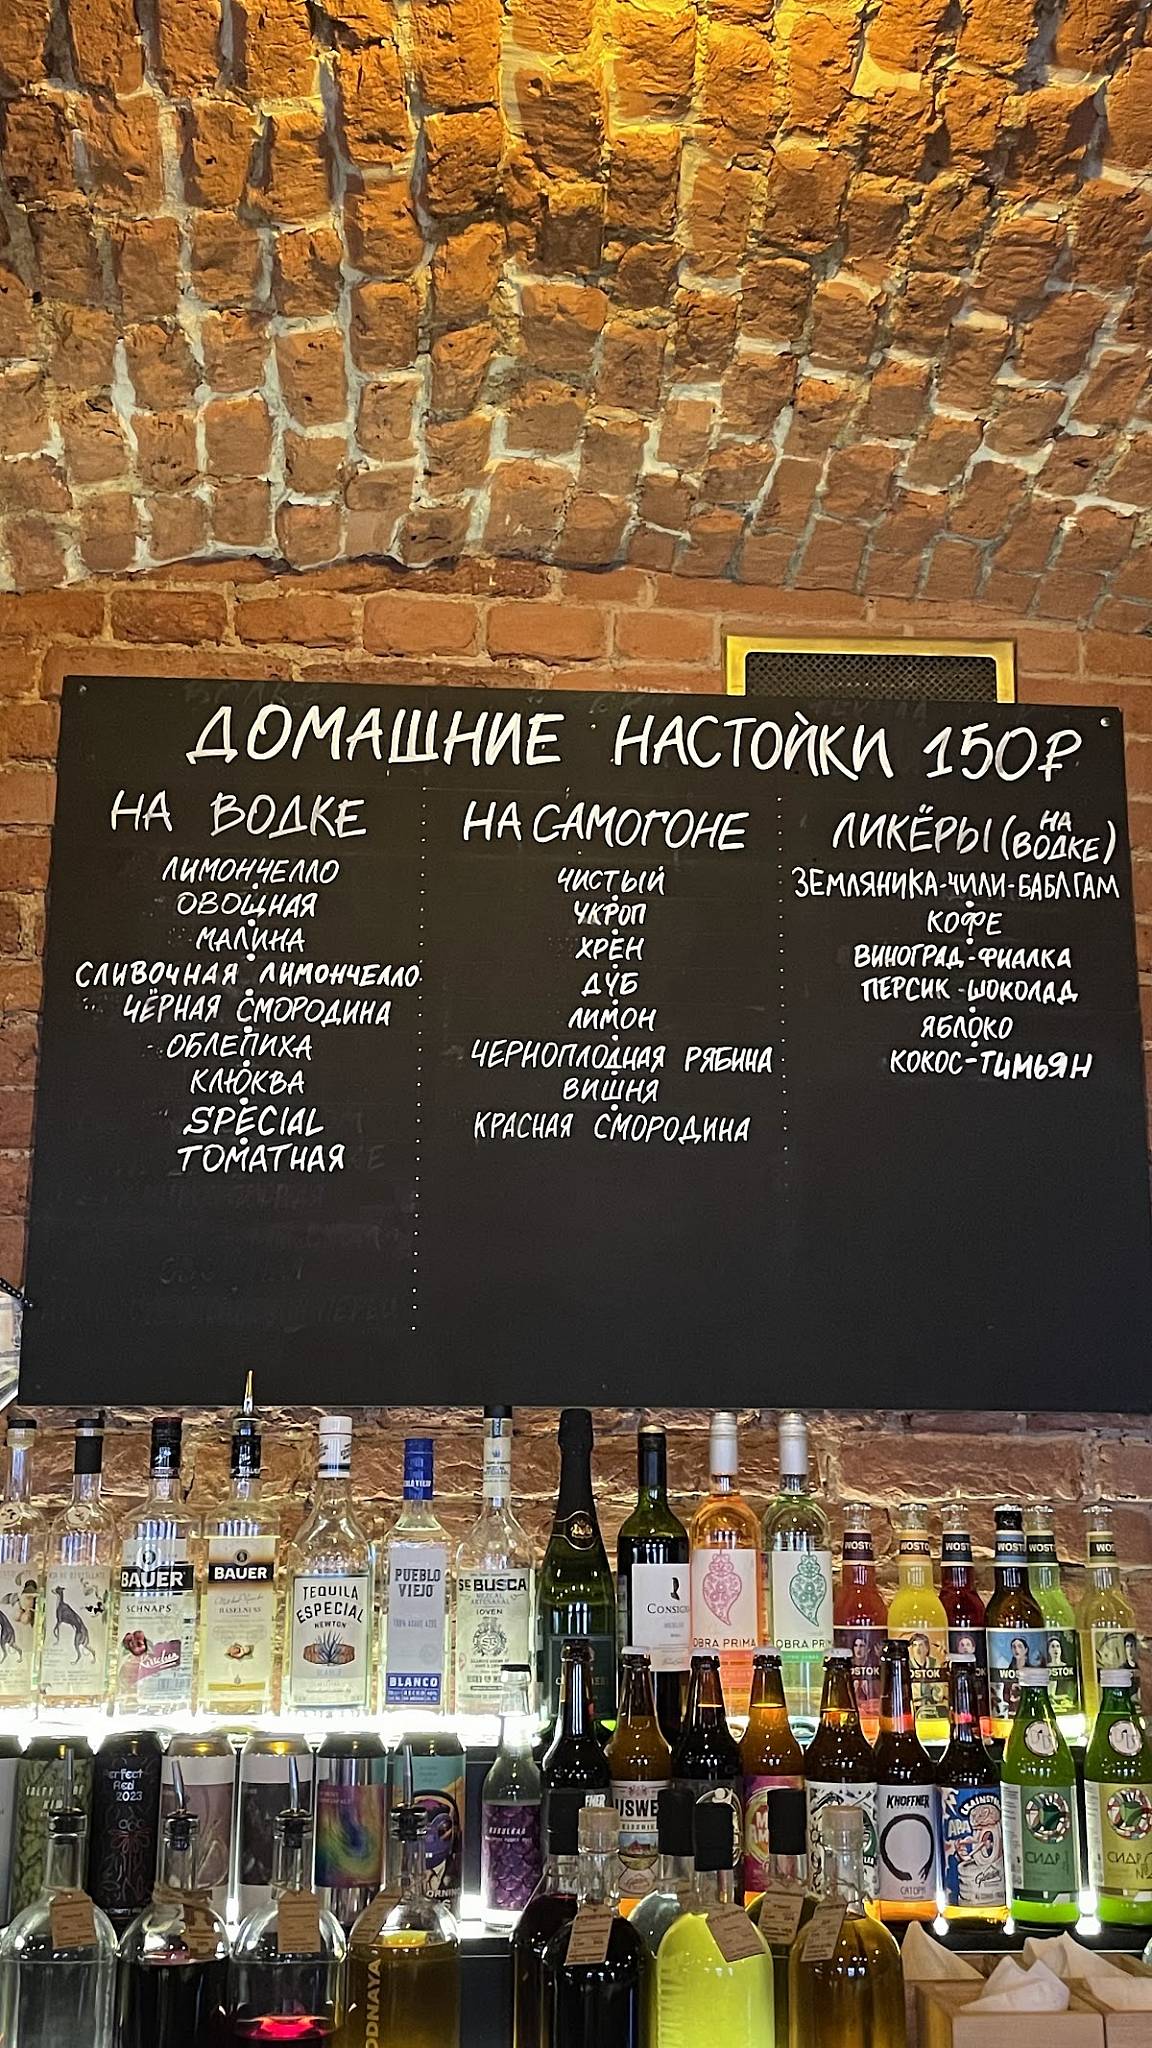 ДОМАШНИЕ НАСТОЙКИ 150₽
НА ВОДКЕ
ЛИМОНЧЕЛЛО
ОВОЩНАЯ
МАЛИНА
СЛИВОЧНАЯ ЛИМОНЧЕЛЛО
ЧЁРНАЯ СМОРОДИНА
ОБЛЕПИХА
КЛЮКВА
SPECIAL
ТОМАТНАЯ
НА САМОГОНЕ
ЧИСТЫЙ
УКРОП
ХРЕН
ДУБ
ЛИМОН
ЧЕРНОПЛОДНАЯ РЯБИНА
ВИШНЯ
КРАСНАЯ СМОРОДИНА
ЛИКЁРЫ (НА ВОДКЕ)
ЗЕМЛЯНИКА-ЧИЛИ-БАБЛГАМ
КОФЕ
ВИНОГРАД-ФИАЛКА
ПЕРСИК-ШОКОЛАД
ЯБЛОКО
КОКОС-ТИМЬЯН
BAUER
SCHNAPS
Kirschen
BAUER
HASELNUSS
TEQUILA
ESPECIAL
NEWTON
BLANCO
PUEBLO
VIEJO
BLANCO
SE BUSCA
ARTESANAL
JOVEN
CONSIGNA
OBRA PRIMA
OBRA PRI
WOSTO
WOSTO
WOST
WOSTO
WO
OSTOK
OSTOK
WOS
STOK
Perfect
Red
2023
KNOFFNER
BRAINSTORM
APA
СИДР
СИДР
№2
ODNAYA